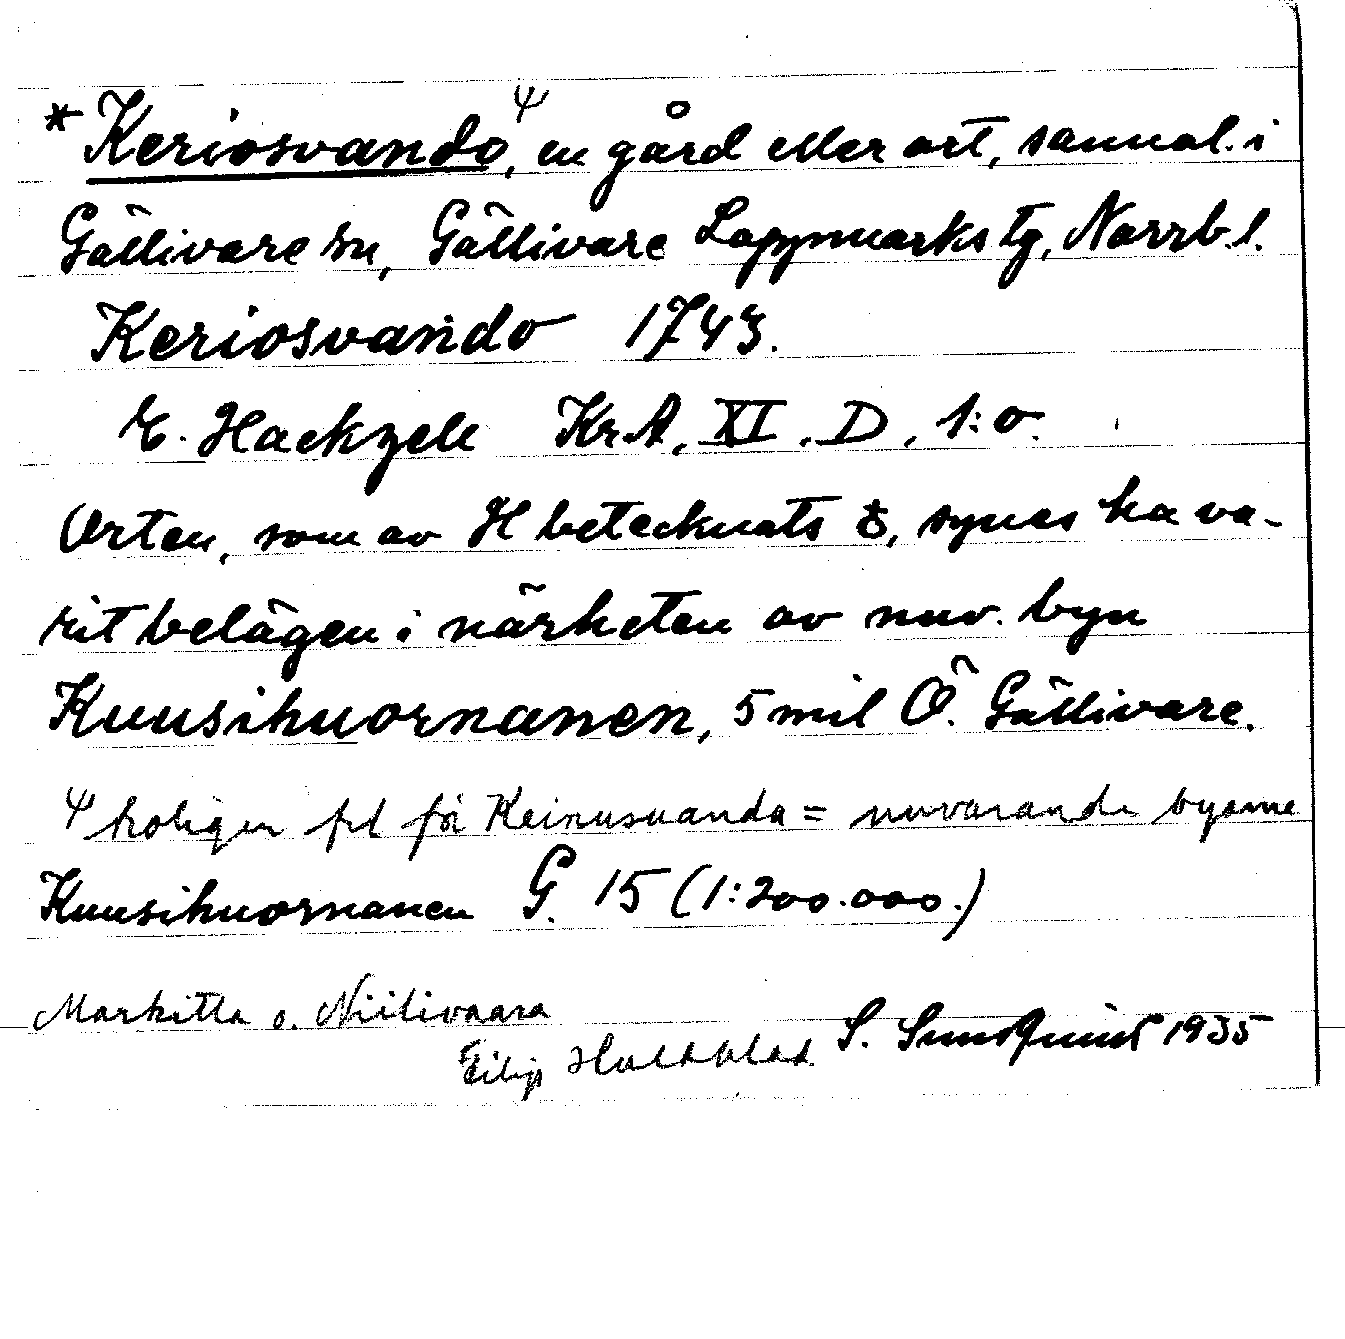 * Keriosvando, Ψ en gård eller ort, sannol. i
Gällivare sn, Gällivare Lappmarks tg, Norrb. l.
Keriosvando 1743.
E. Hackzell Kr.A, XI. D, 1:0.
Orten, som av H betecknats ♁, synes ha va-
rit belägen i närheten av nuv. byn
Kuusihuornanen, 5 mil Ö. Gällivare.
Ψ troligen fel för Keinusuanda = nuvarande byarne
Kuusihuornanen G. 15 (1:200.000.)
Markitta o. Niilivaara
Filip Hultblad. S. Sundquist 1935